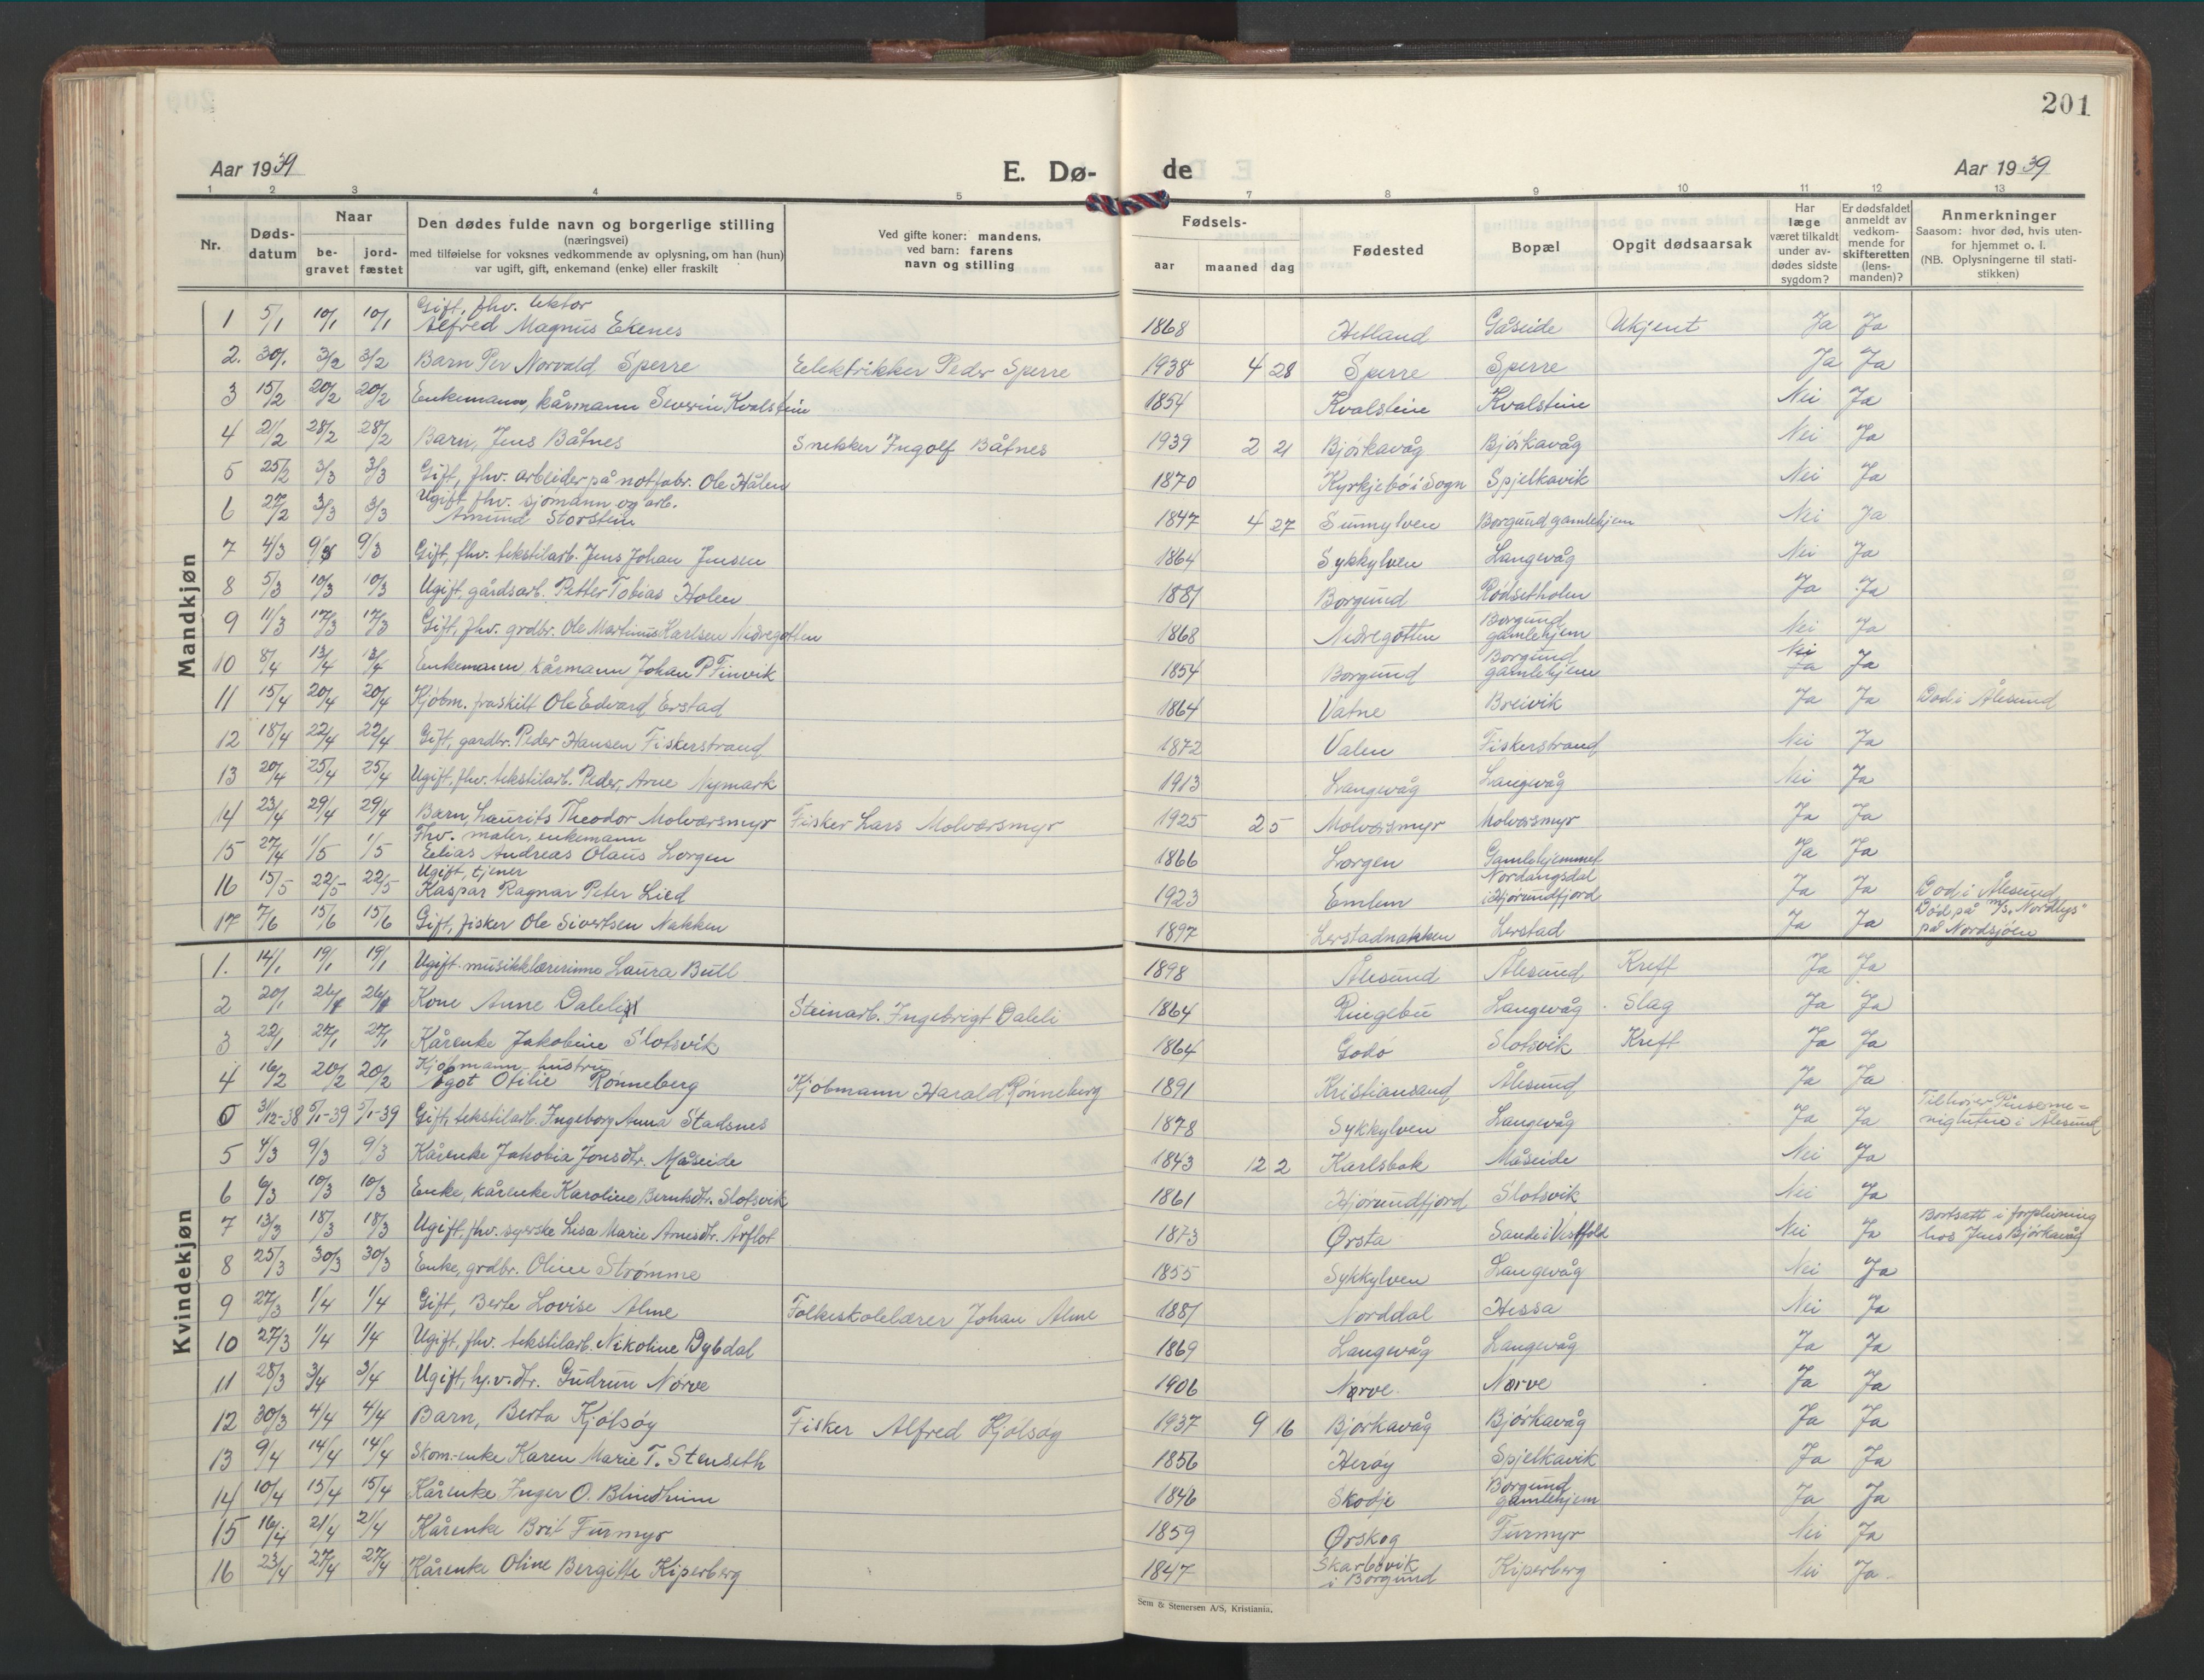 201
Aar 1939 E. Dø- de Aar 1939
1 2 3 4 5 7 8 9 10 11 12 13
Nr.
Døds-
datum
Naar
be-
gravet
jord-
fæstet
Den dødes fulde navn og borgerlige stilling
(næringsvei)
med tilføielse for voksnes vedkommende av oplysning, om han (hun)
var ugift, gift, enkemand (enke) eller fraskilt
Ved gifte koner: mandens,
ved barn: farens
navn og stilling
Fødsels-
aar maaned dag
Fødested
Bopæl
Opgit dødsaarsak
Har
læge
været tilkaldt
under av-
dødes sidste
sygdom?
Er dødsfaldet
anmeldt av
vedkom-
mende for
skifteretten
(lens-
manden)?
Anmerkninger
Saasom: hvor død, hvis uten-
for hjemmet o. l.
(NB. Oplysningerne til stati-
stikken)
Mandkjøn
1 5/1 10/1 10/1 Gift, fhv. lektor
Alfred Magnus Ekenes 1868 Hetland Gåseide Ukjent Ja Ja
2. 30/1 3/2 3/2 Barn Per Norvald Sperre Elektrikker Peder Sperre 1938 4 28 Sperre Sperre Ja Ja
3 15/2 20/2 20/2 Enkemann, kårmann Severin Kvalsteine 1854 Kvalsteine Kvalsteine Nei Ja
4 21/2 28/2 28/2 Barn, Jens Båtnes Snekker Ingolf Båtnes 1939 2 21 Bjørkavåg Bjørkavåg Nei Ja
5 25/2 3/3 3/3 Gift, fhv. arbeider på notfabr. Ole Hålen 1870 Kyrkjebø i Sogn Spjelkavik Nei Ja
6 27/2 3/3 3/3 Ugift fhv. sjømann og arb.
Amund Storstein 1847 4 27 Sunnylven Borgund gamlehjem Nei Ja
7 4/3 9/3 9/3 Gift, fhv. tekstilarb. Jens Johan Jensen 1864 Sykkylven Langevåg Nei Ja
8 5/3 10/3 10/3 Ugift, gårdsarb. Petter Tobias Holen 1881 Borgund Rødsetholen Ja Ja
9 11/3 17/3 17/3 Gift, fhv. grdbr. Ole Martinus Karlsen Nedregotten 1868 Nedregotten Borgund
gamlehjem Nei Ja
10 8/4 13/4 13/4 Enkemann, kårmann Johan P Finvik 1854 Borgund Borgund
gamlehjem Nei Ja Ja
11 15/4 20/4 20/4 Kjøbm. fraskilt Ole Edvard Erstad 1864 Vatne Breivik Ja Ja Død i Ålesund
12 18/4 22/4 22/4 Gift, gardbr. Peder Hansen Fiskerstrand 1872 Valen Fiskerstrand Nei Ja
13 20/4 25/4 25/4 Ugift, fhv. tekstilarb. Peder, Arne Nymark 1913 Langevåg Langevåg Nei Ja
14 23/4 29/4 29/4 Barn, Laurits Theodor Molværsmyr Fisker Lars Molværsmyr 1925 2 5 Molværsmyr Molværsmyr Ja Ja
15 27/4 1/5 1/5 Fhv. maler, enkemann
Elias Andreas Olaus Lorgen 1866 Lorgen Gamlehjemmet Ja Ja
16 15/5 22/5 22/5 Ugift, tjener
Kaspar Ragnar Peter Lied 1923 Emlem Nordangsdal
i Hjørundfjord Ja Ja Død i Ålesund
17 7/6 15/6 15/6 Gift, fisker Ole Sivertsen Nakken 1897 Lerstadnakken Lerstad Ja Ja Død på m/s. "Nordlys"
på Nordsjøen
Kvindekjøn
1. 14/1 19/1 19/1 Ugift. musikklærerinne Laura Bull 1898 Ålesund Ålesund Kreft Ja Ja
2 20/1 26/1 26/1 Kone Anne Daleli Steinarb. Ingebrigt Daleli 1864 Ringebu Langevåg Slag Ja Ja
3 22/1 27/1 27/1 Kårenke Jakobine Slotsvik 1864 Godø Slotsvik Kreft Ja Ja
4 16/2 20/2 20/2 Kjøbmann hustru
Ågot Otilie Rønneberg Kjøbmann Harald Rønneberg 1891 Kristiansand Ålesund Ja Ja
0 31/12-38 5/1-39 5/1-39 Gift, tekstilarb. Ingeborg Anna Stadsnes 1878 Sykkylven Langevåg Ja Ja Tilhører Pinseme-
nigheten i Ålesund
5 4/3 9/3 9/3 Kårenke Jakobia Jonsdtr. Måseide 1843 12 2 Karlsbak Måseide Nei Ja
6 6/3 10/3 10/3 Enke, kårenke Karoline Berntsdtr. Slotsvik 1861 Hjørundfjord Slotsvik Nei Ja
7 13/3 18/3 18/3 Ugift, fhv. syerske Lisa Marie Arnesdtr. Årflot 1873 Ørsta Sande i Vestfold Nei Ja Bortsatt i forpleining
hos Jens Bjørkavåg
8 25/3 30/3 30/3 Enke, grdbr. Oline Strømme 1855 Sykkylven Langevåg Nei Ja
9 27/3 1/4 1/4 Gift, Berte Lovise Alme Folkeskolelærer Johan Alme 1881 Norddal Hessa Nei Ja
10 27/3 1/4 1/4 Ugift, fhv. tekstilarb. Nikoline Dybdal 1869 Langevåg Langevåg Ja Ja
11 28/3 3/4 3/4 Ugift, hj.v. dtr. Gudrun Nørve 1906 Nørve Nørve Ja Ja
12 30/3 4/4 4/4 Barn, Berta Kjølsøy Fisker Alfred Kjølsøy 1937 9 16 Bjørkavåg Bjørkavåg Ja Ja
13 9/4 14/4 14/4 Skom-enke Karen Marie T. Stenseth 1856 Herøy Spjelkavik Ja Ja
14 10/4 15/4 15/4 Kårenke Inger O. Blindheim 1846 Skodje Borgund
gamlehjem Ja Ja
15 16/4 21/4 21/4 Kårenke Brit Furmyr 1859 Ørskog Furmyr Nei Ja
16 23/4 27/4 27/4 Kårenke Oline Bergitte Kiperberg 1847 Skarbøvik
i Borgund Kiperberg Nei Ja
Sem & Stenersen A/S, Kristiania.